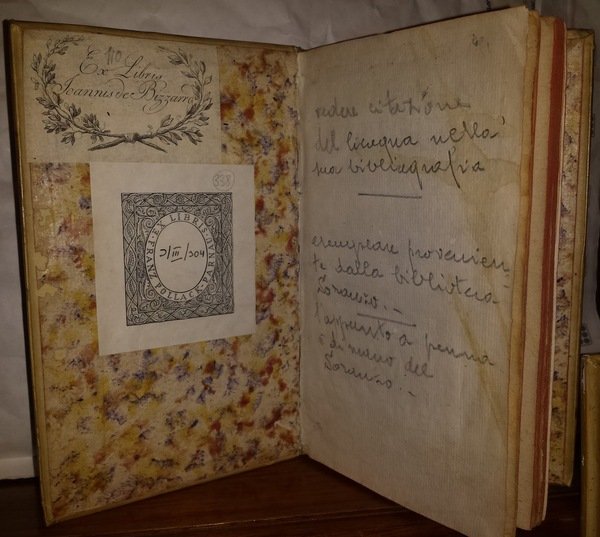 110
Ex Libris
Joannis de Bizzarro
338
EX LIBRIS
FRANZ POLLACK
2/III/304
vedere citazione
del Cicogna nella
sua bibliografia
esemplare provenien-
te dalla biblioteca
Soranzo. -
l'appunto a penna
è di mano del
Soranzo. -